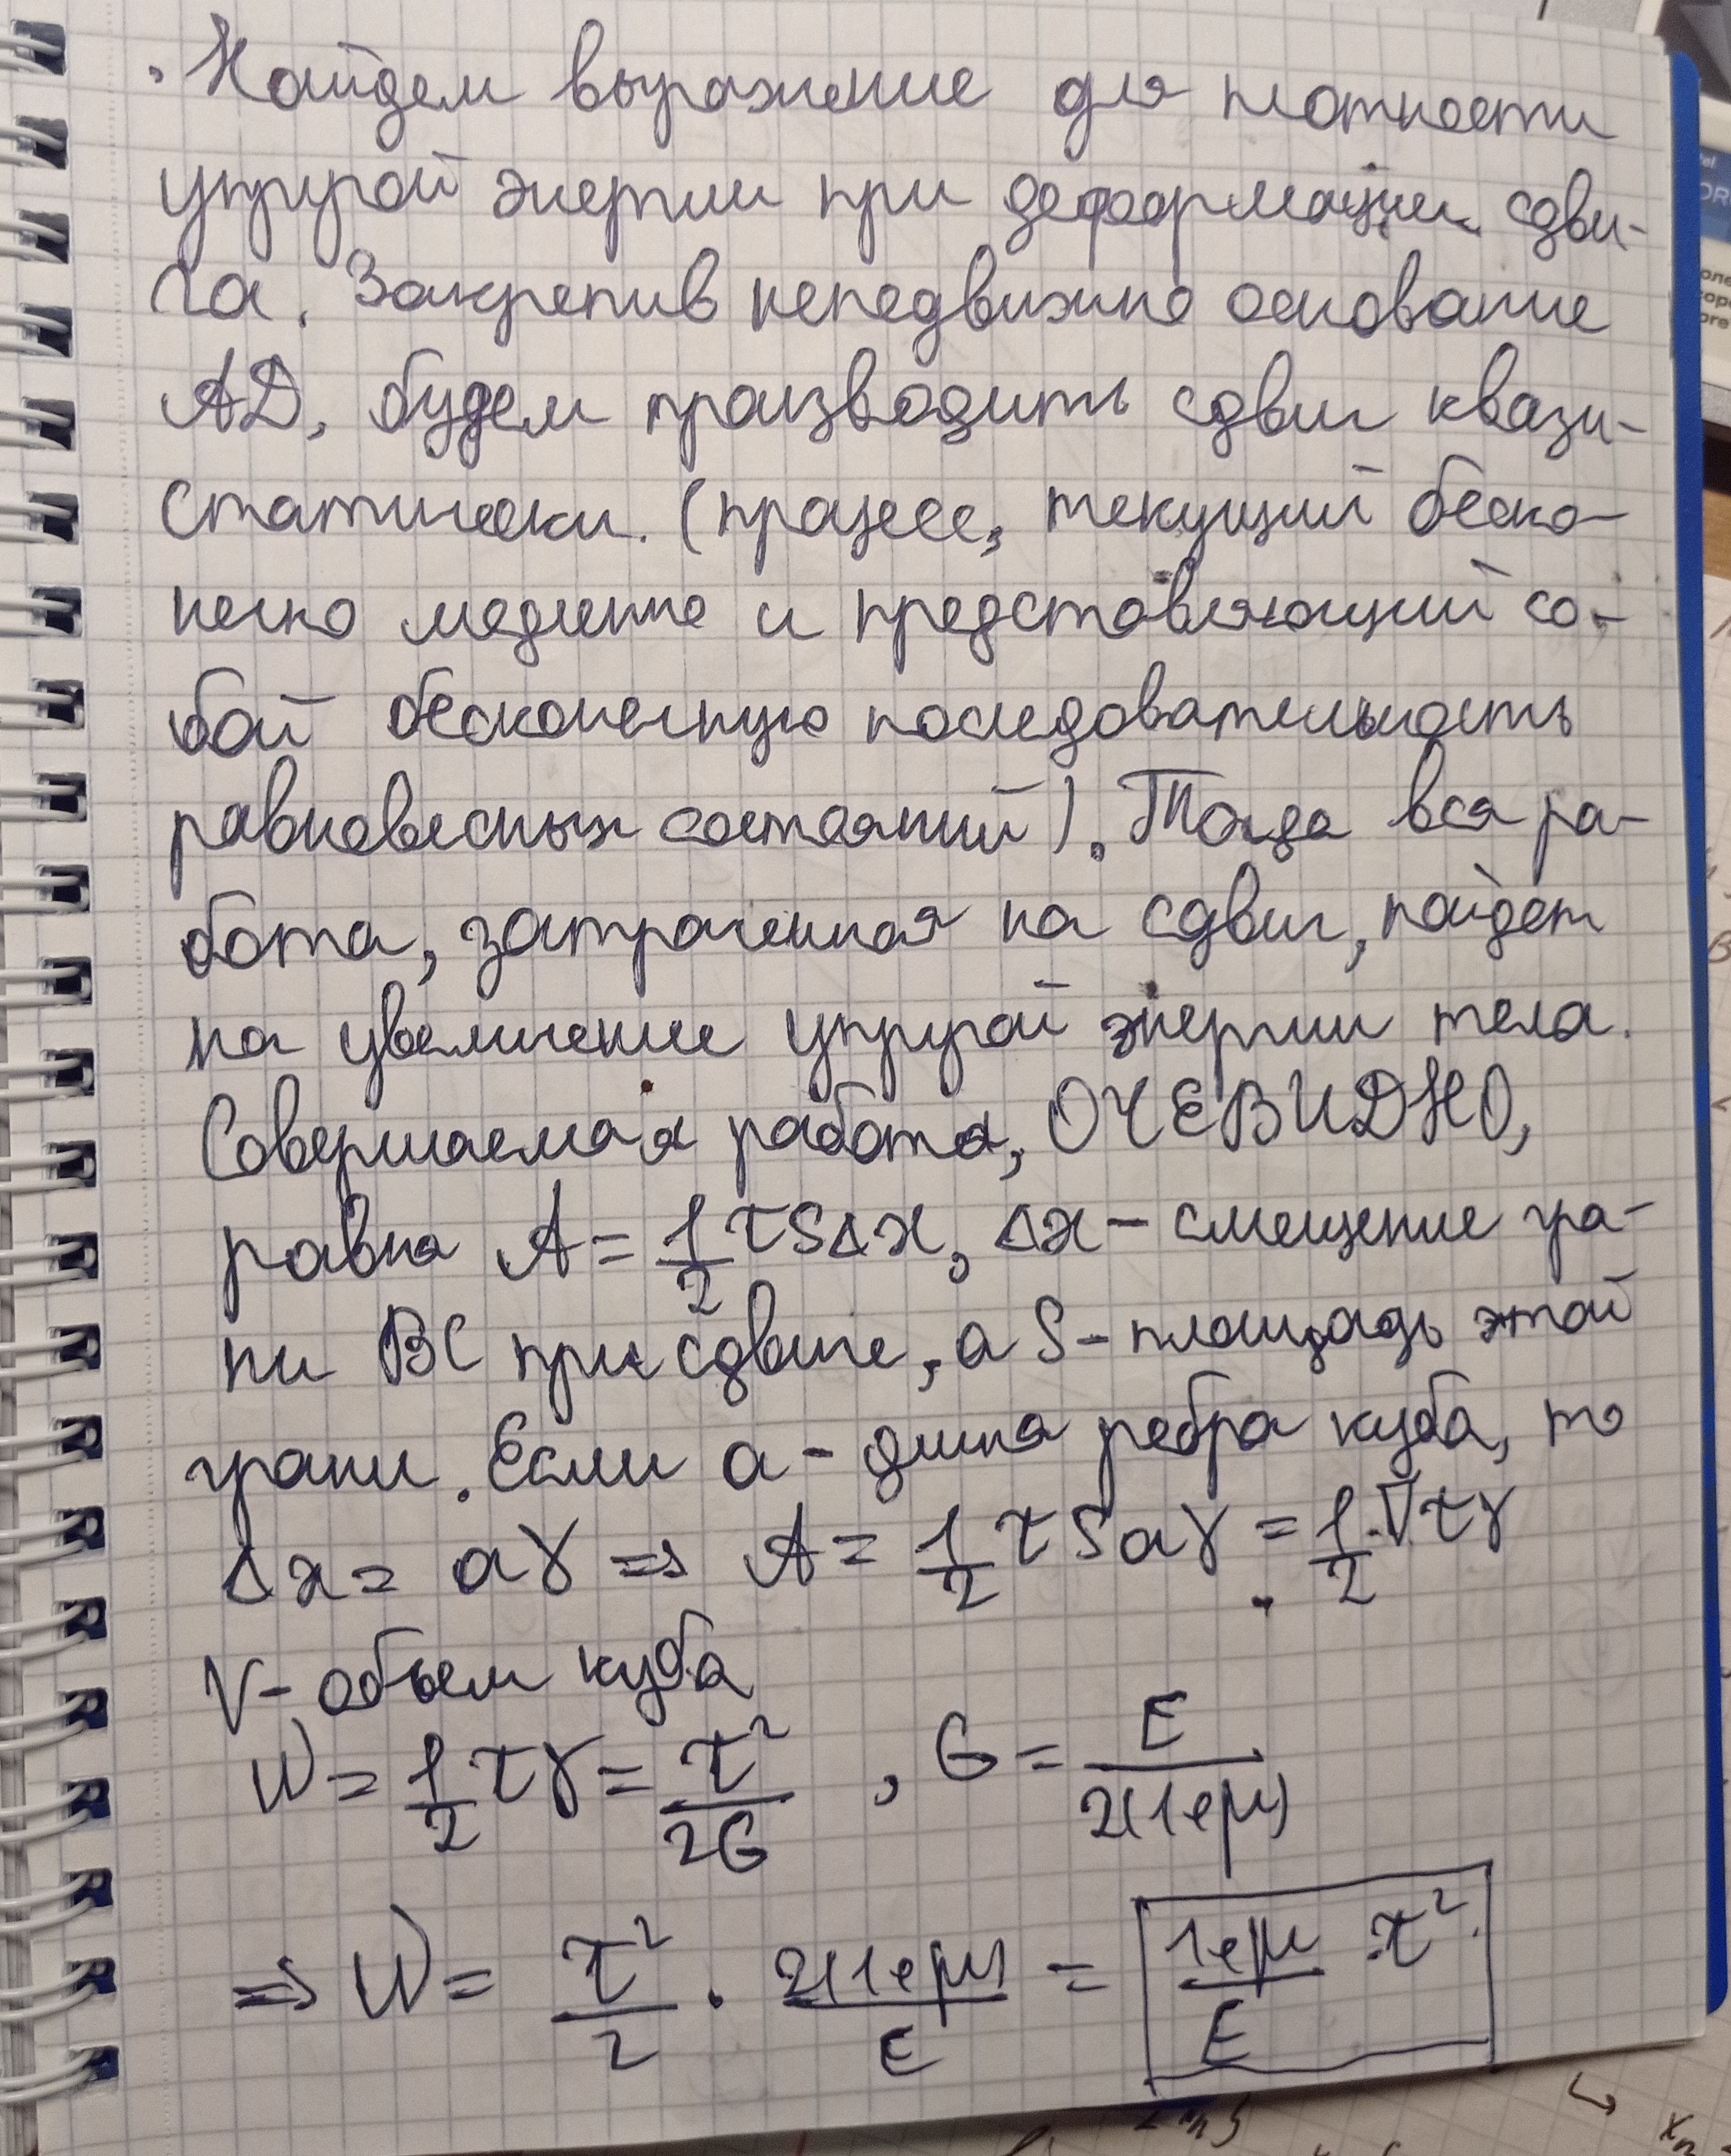 Найдем выражение для плотности
упругой энергии при деформации сдви-
га. Закрепив неподвижно основание
AD, будем производить сдвиг квази-
статически. (процесс, текущий беско-
нечно медленно и представляющий со-
бой бесконечную последовательность
равновесных состояний). Тогда вся ра-
бота, затраченная на сдвиг, пойдет
на увеличение упругой энергии тела.
Совершаемая работа, ОЧЕВИДНО,
равна A = 1/2 τSΔx, Δx – смещение гра-
ни BC при сдвиге, а S – площадь этой
грани. Если a – длина ребра куба, то
Δx = aγ => A = 1/2 τSaγ = 1/2 Vτγ
V – объем куба
W = 1/2 τγ = τ²/2G , G = E/2(1+μ)
=> W = τ²/2 · 2(1+μ)/E = 1+μ/E · τ²